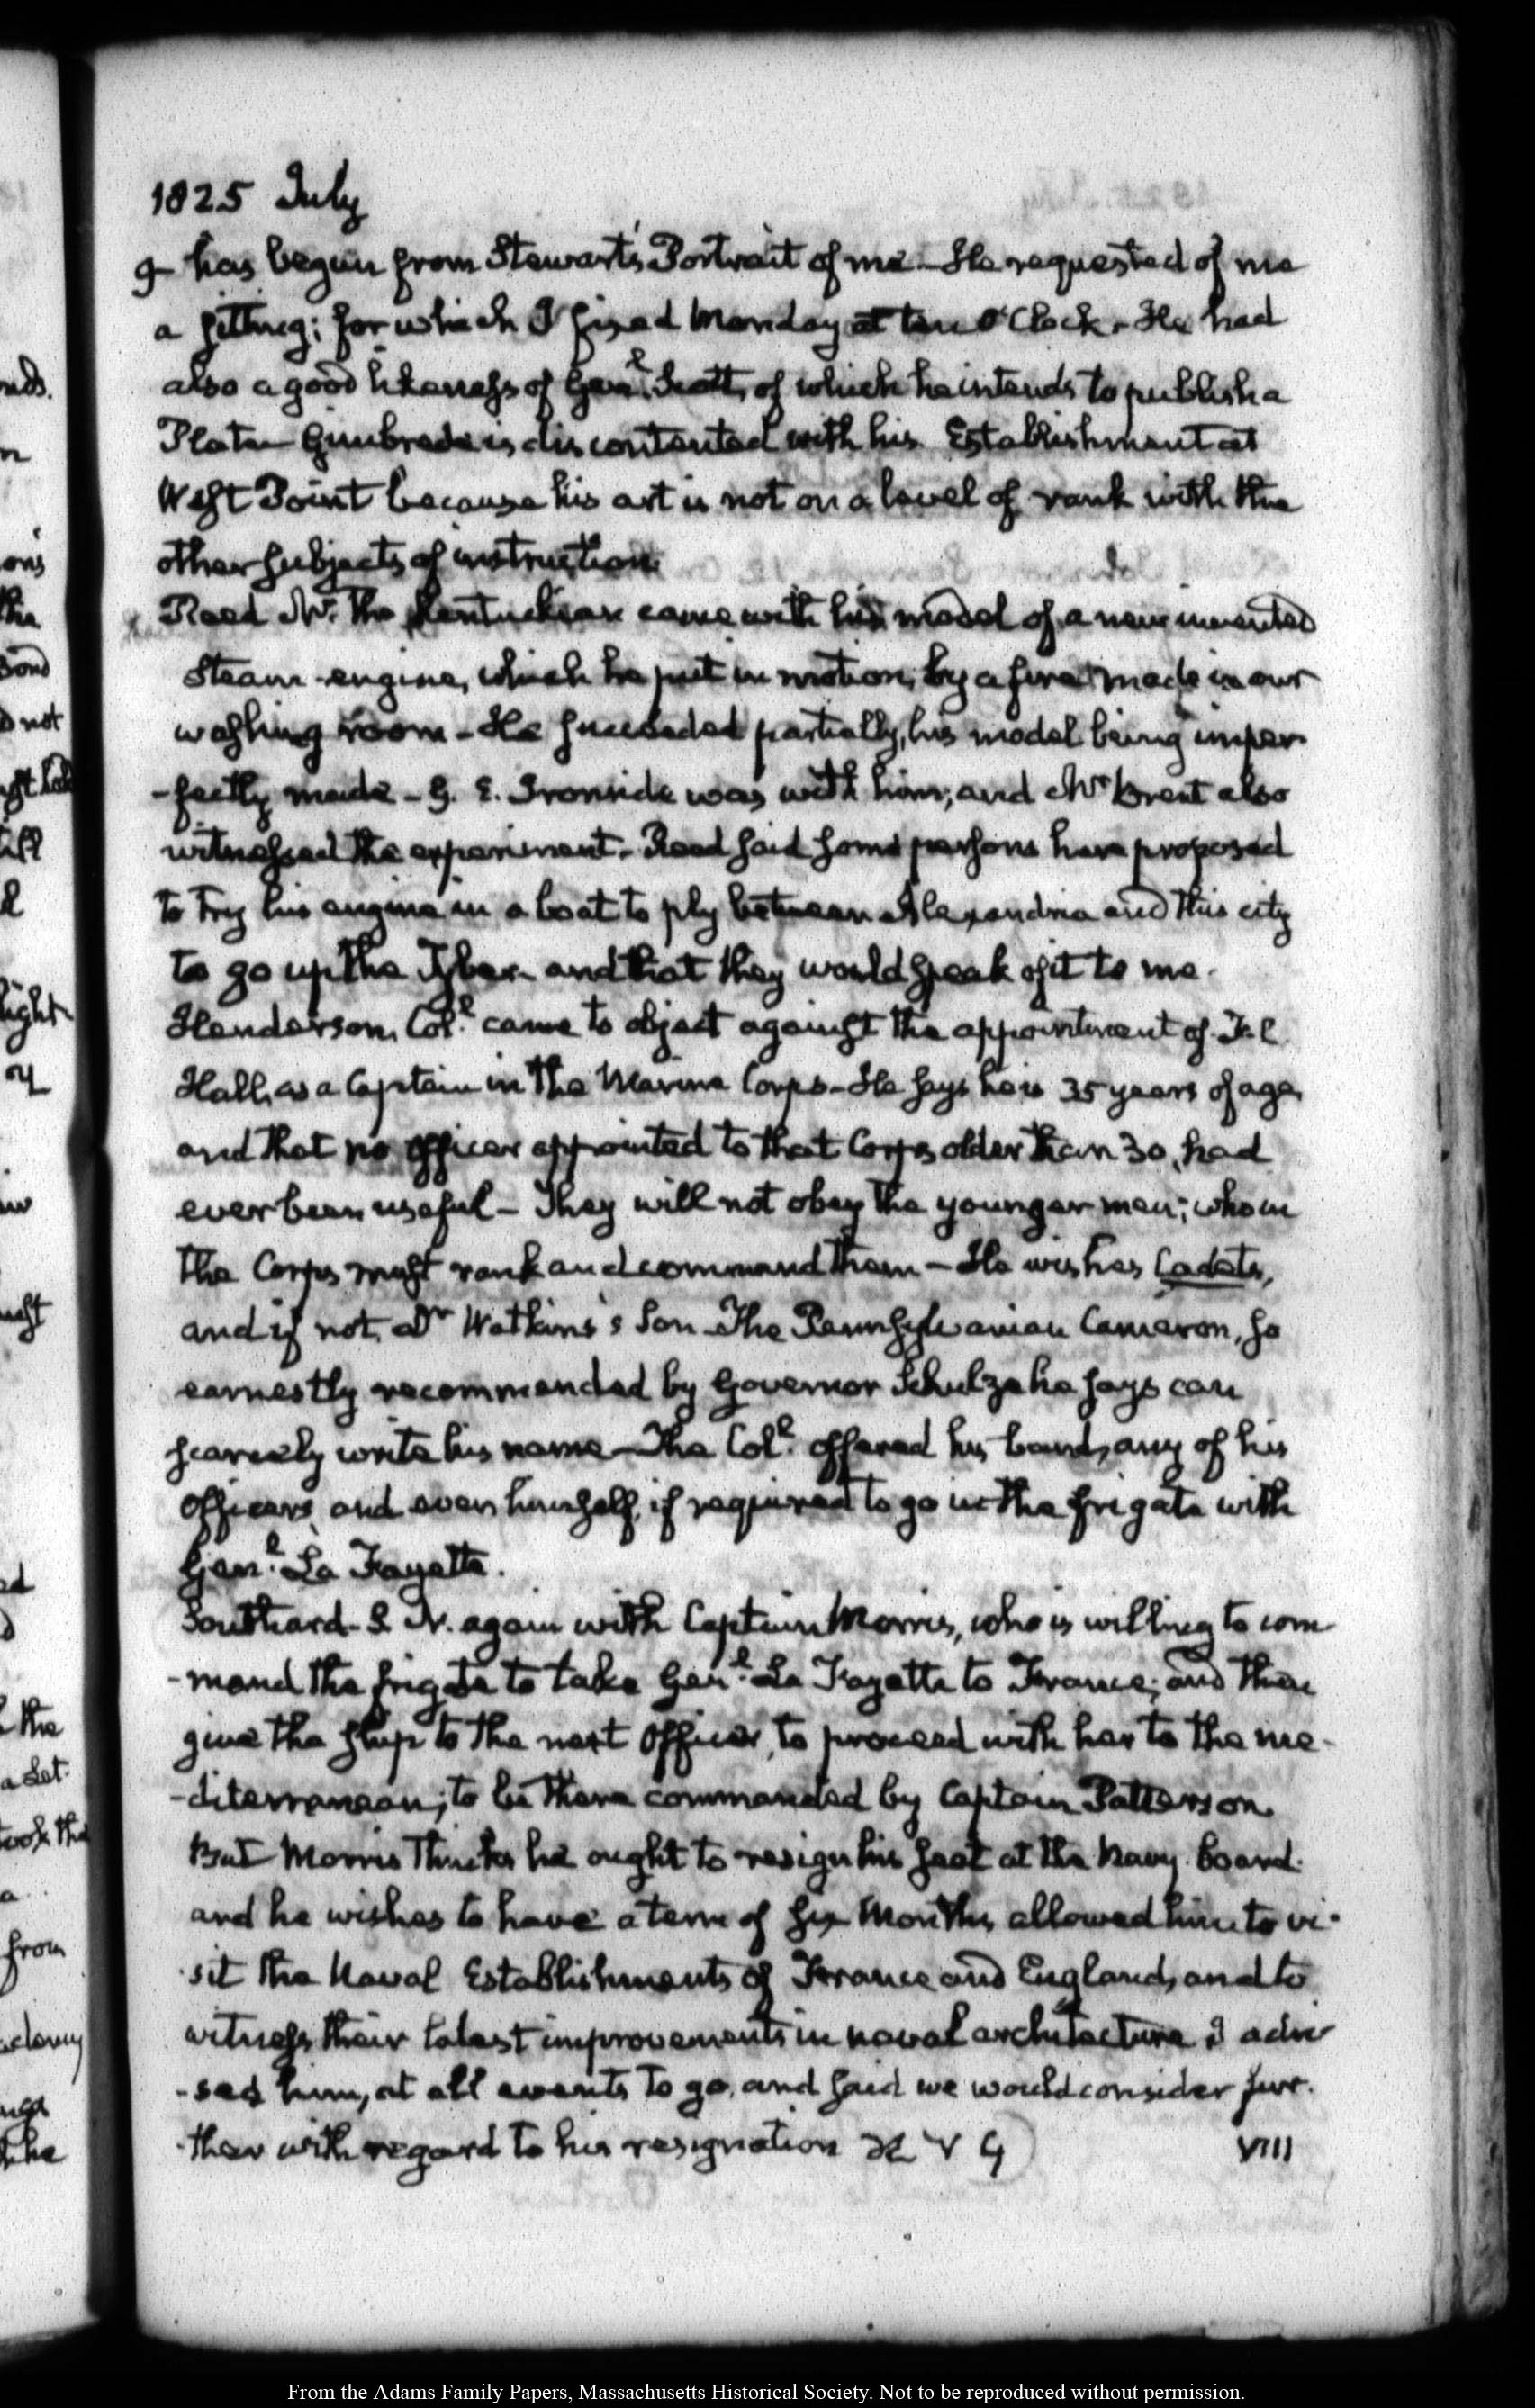 1825 July
9 has begun from Stewart's Portrait of me — He requested of me
a sitting; for which I fixed Monday at ten O'Clock. He had
also a good likeness of Genl. Scott, of which he intends to publish a
Plate — Gimbrede is discontented with his Establishment at
West Point because his art is not on a level of rank with the
other subjects of instruction.
Reed Mr. The Kentuckian came with his model of a new invented
Steam-engine, which he put in motion, by a fire made in our
washing room — He succeeded partially, his model being imper
-fectly made — G. E. Ironside was with him; and Mr Brent also
witnessed the experiment. Reed said some persons have proposed
to try his engine in a boat to ply between Alexandria and this city
to go up the Tyber and that they would speak of it to me.
Henderson, Coll. came to object against the appointment of
Hall, as a Captain in the Marine Corps — He says he is 35 years of age,
and that no officer appointed to that Corps older than 30, had
ever been useful — They will not obey the younger men; who in
the Corps must rank and command them — He wishes Cadets,
and if not, Dr Watkins's Son — The Pennsylvanian Cameron, so
earnestly recommended by Governor Schulze he says can
scarcely write his name — The Coll. offered his band, any of his
Officers, and even himself, if required to go in the frigate with
Genl. La Fayette.
Southard — S. N. again with Captain Morris, who is willing to com
-mand the frigate to take Genl. La Fayette to France; and then
give the ship to the next Officer, to proceed with her to the me-
-diterranean; to be there commanded by Captain Patterson.
But Morris thinks he ought to resign his seat at the Navy board.
and he wishes to have a term of six Months, allowed him to vi-
-sit the Naval Establishments of France and England, and to
witness their latest improvements in naval architecture I advi
-sed him, at all events to go, and said we would consider fur-
-ther with regard to his resignation
VIII
nds.
n
ons
the
not
l
light
the
from
the
From the Adams Family Papers, Massachusetts Historical Society. Not to be reproduced without permission.